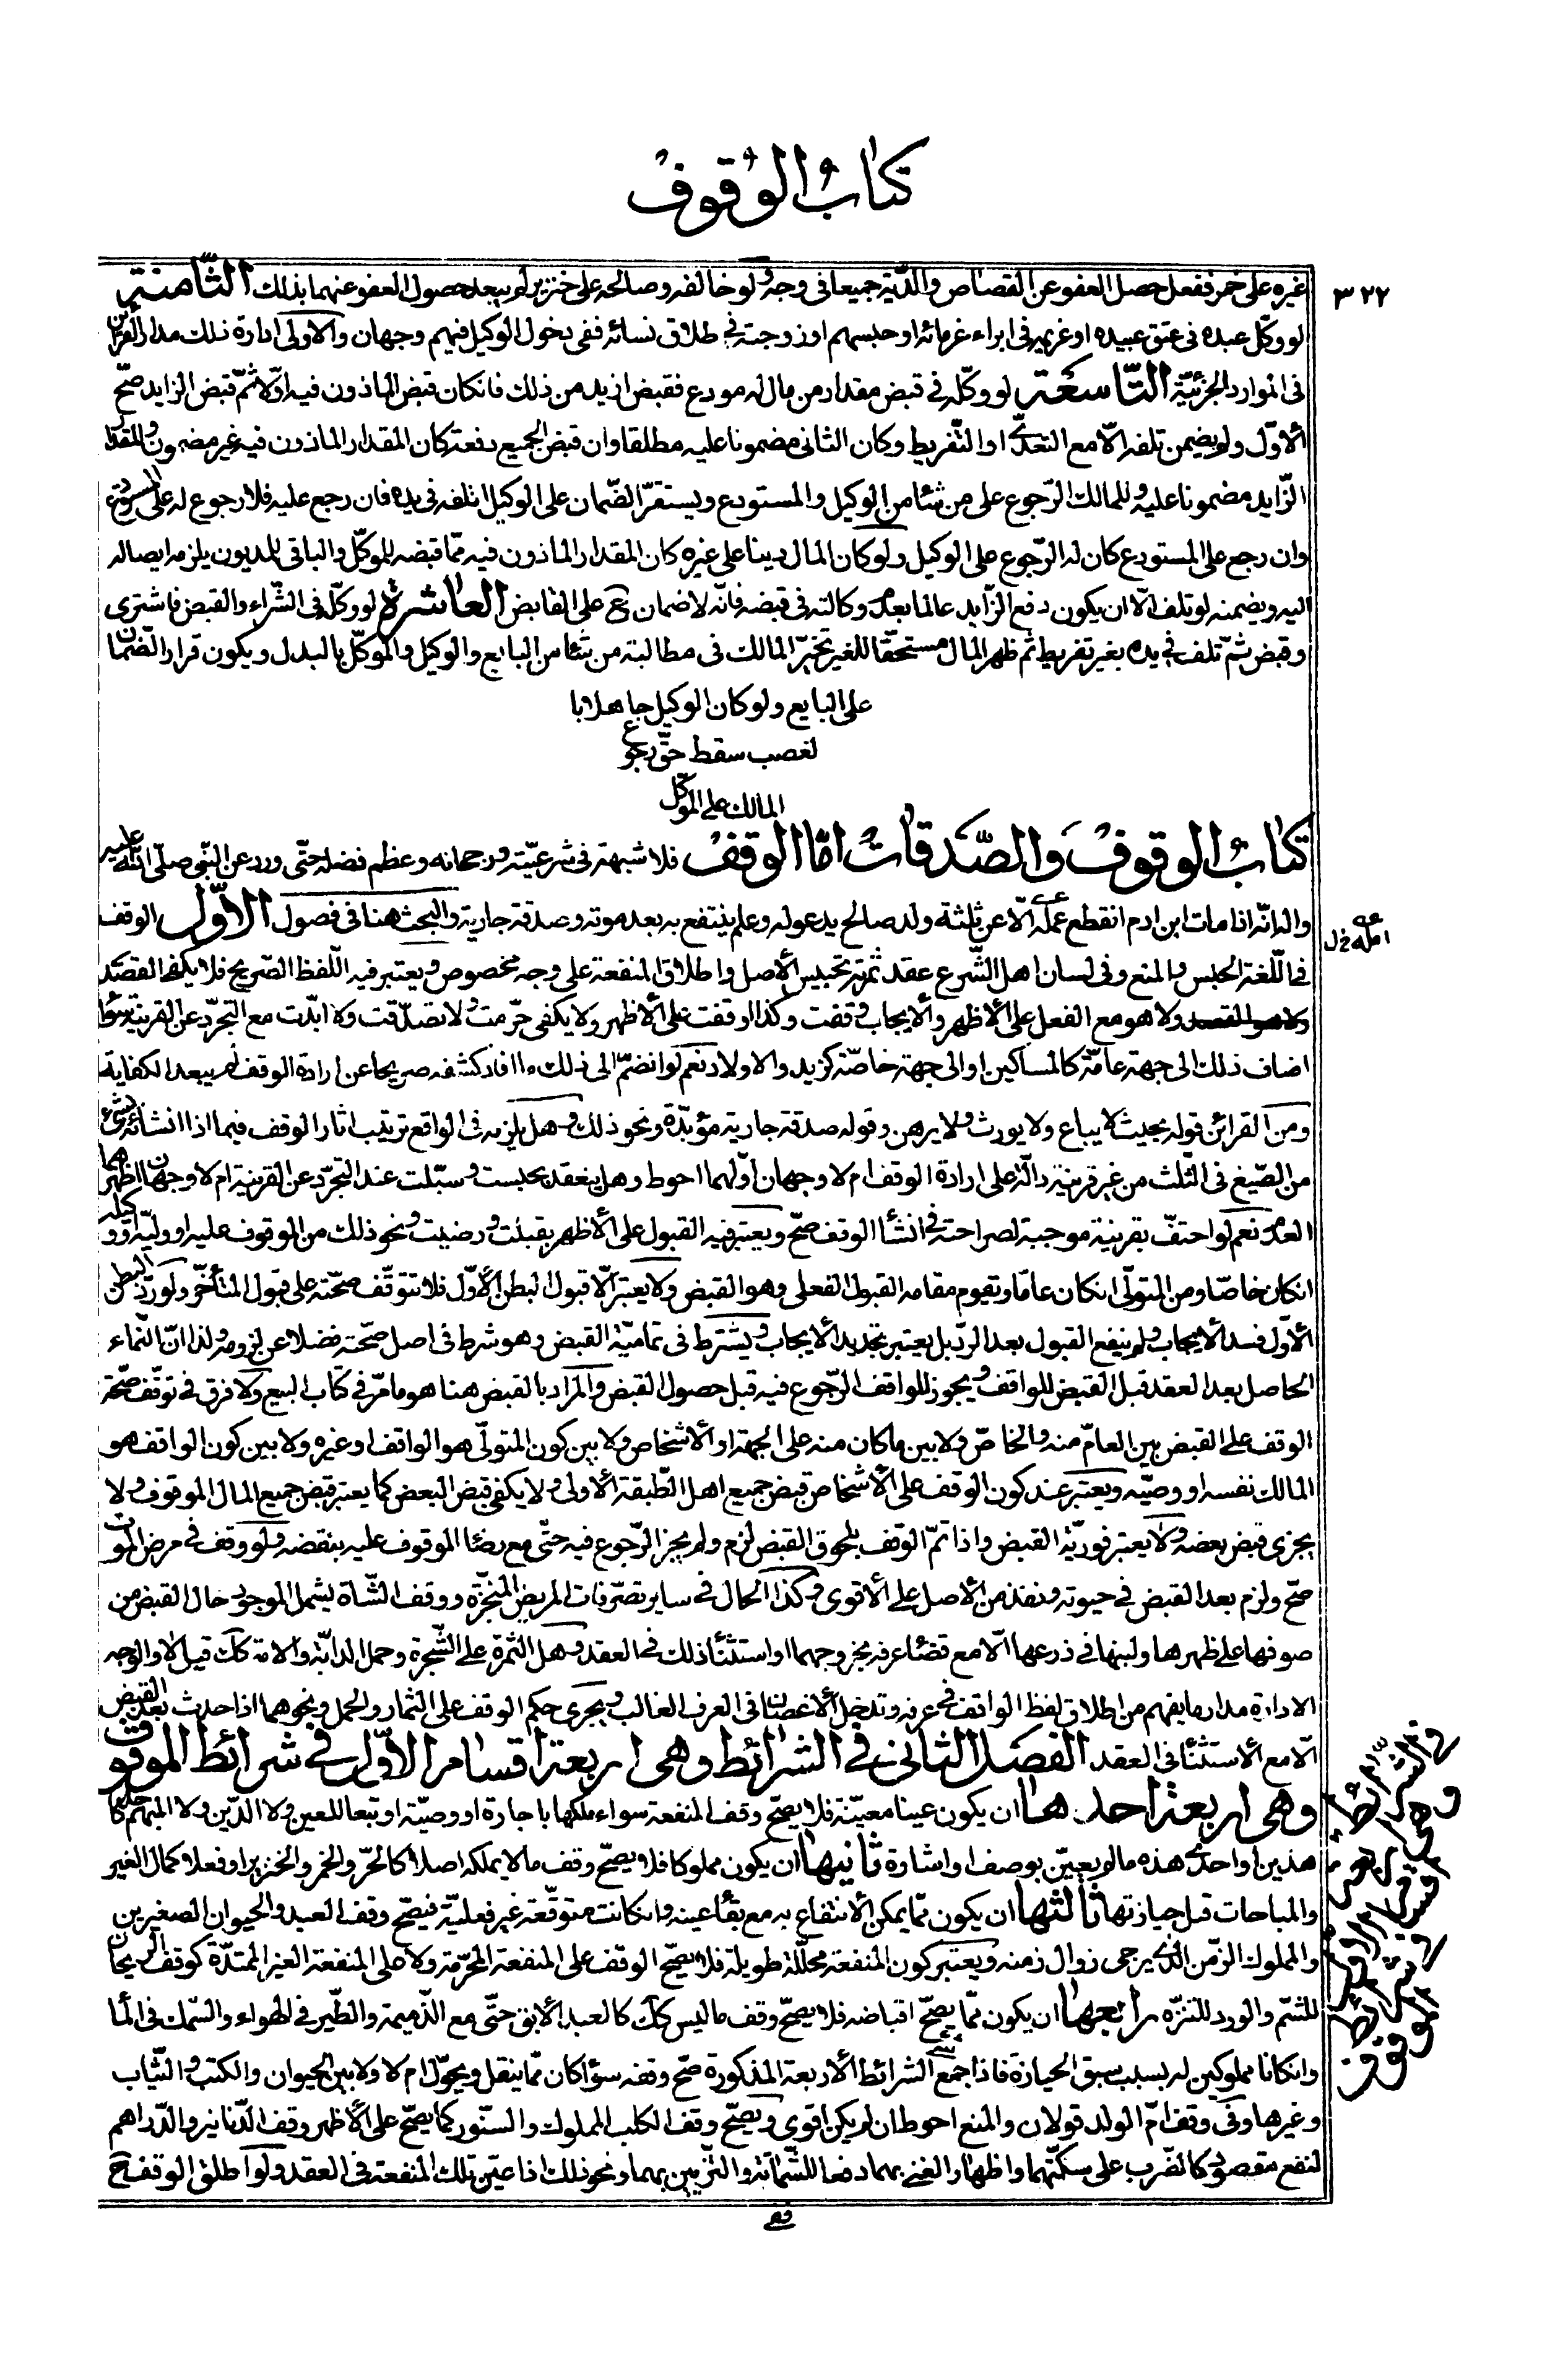 كتاب الوقوف
٣٢٢
غيره على خمر ففعل حصل العفو عن القصاص والدّية جميعا في وجه ولو خالفه وصالحه على خنزير لم يبعد حصول العفو عنهما بذلك الثّامنة
لو وكّل عبده في عتق عبيده او غريمه في ابراء غرمائه او حبسهم او زوجته في طلاق نسائه ففي دخول الوكيل فيهم وجهان والاولى ادارة ذلك مدار القرائن
في الموارد الجزئيّة التّاسعة لو وكّله في قبض مقدار من مال له مودع فقبض ازيد من ذلك فانكان قبض الماذون فيه اوّلا ثمّ قبض الزايد صحّ
الأوّل ولم يضمن تلفه الّا مع التعدّي او التّفريط وكان الثاني مضمونا عليه مطلقا وان قبض الجميع دفعة كان المقدار الماذون فيه غير مضمون والمقدار
الزّايد مضمونا عليه وللمالك الرّجوع على من شاء من الوكيل والمستودع ويستقرّ الضّمان على الوكيل ان تلفه في يده فان رجع عليه فلا رجوع له على المستودع
وان رجع على المستودع كان له الرّجوع على الوكيل ولو كان المال دينا على غيره كان المقدار الماذون فيه ممّا قبضه للموكّل والباقي للمديون يلزمه ايصاله
اليه ويضمنه لو تلف الّا ان يكون دفع الزّايد عالما بعدم وكالته في قبضه فانّه لا ضمان ح على القابض العاشرة لو وكّله في الشّراء والقبض فاشترى
وقبض ثمّ تلف في يده بغير تفريط ثم ظهر المال مستحقّا للغير تخيّر المالك في مطالبة من شاء من البايع والوكيل والموكّل بالبدل ويكون قرار الضّمان
على البايع ولو كان الوكيل جاهلا با
لغصب سقط حقّ رجوع
المالك على الموكّل
كتاب الوقوف والصّدقات امّا الوقف فلا شبهة في شرعيّته ورجحانه وعظم فضله حتّى ورد عن النّبي صلّى الله عليه
واله انّه اذا مات ابن ادم انقطع عمله الّا عن ثلثة ولد صالح يدعو له وعلم ينتفع به بعد موته وصدقة جارية والبحث هنا في فصول الاوّل الوقف
امله خ ل
في اللّغة الحبس والمنع وفي لسان اهل الشّرع عقد ثمرته تحبيس الأصل واطلاق المنفعة على وجه مخصوص ويعتبر فيه اللّفظ الصّريح فلا يكفي القصد
ولا هو مع الفعل على الأظهر والأيجاب وقفت وكذا اوقفت على الأظهر ولا يكفي حرّمت ولا تصدّقت ولا ابّدت مع التجرّد عن القرينة سواء
اضاف ذلك الى جهة عامّة كالمساكين او الى جهة خاصّة كزيد والاولاد نعم لو انضمّ الى ذلك ما افاد كشفه صريحا عن ارادة الوقف لم يبعد الكفاية
ومن القرائن قوله بحيث لا يباع ولا يورث ولا يرهن وقوله صدقة جارية مؤبّدة ونحو ذلك وهل يلزمه في الواقع ترتيب اثار الوقف فيما اذا انشائه بشئ
من الصّيغ في الثّلث من غير قرينة دالّة على ارادة الوقف ام لا وجهان اوّلهما احوط وهل ينعقد بحبست وسبّلت عند التجرّد عن القرينة ام لا وجهان اظهرهما
العدم نعم لو احتفّ بقرينة موجبة لصراحته في انشاء الوقف صحّ ويعتبر فيه القبول على الأظهر بقبلت ورضيت ونحو ذلك من الموقوف عليه او وليّه او وكيله
انكان خاصّا ومن المتولّي انكان عامّا ويقوم مقامه القبول الفعلي وهو القبض ولا يعتبر الّا قبول البطن الأوّل فلا تتوقّف صحّته على قبول المتأخّر ولو ردّ البطن
الأوّل فسد الأيجاب ولم ينفع القبول بعد الردّ بل يعتبر تجديد الأيجاب ويشترط في تماميّة القبض وهو شرط في اصل صحّته فضلا عن لزومه ولذا انّ النّماء
الحاصل بعد العقد قبل القبض للواقف ويجوز للواقف الرّجوع فيه قبل حصول القبض والمراد بالقبض هنا هو ما مرّ في كتاب البيع ولا فرق في توقّف صحّة
الوقف على القبض بين العامّ منه والخاصّ ولا بين ما كان منه على الجهة او الأشخاص ولا بين كون المتولّي هو الواقف او غيره ولا بين كون الواقف هو
المالك نفسه او وصيّه ويعتبر عند كون الوقف على الأشخاص قبض جميع اهل الطّبقة الأولى ولا يكفي قبض البعض كما يعتبر قبض جميع المال الموقوف ولا
يجزي قبض بعضه ولا يعتبر فوريّة القبض واذا تمّ الوقف بلحوق القبض لزم ولم يجز الرّجوع فيه حتّى مع رضاء الموقوف عليه بنقضه ولو وقف في مرض الموت
صحّ ولزم بعد القبض في حيوته ونفذ من الأصل على الأقوى وكذا الحال في ساير تصرّفات المريض المنجّزة ووقف الشّاة يشمل الموجود حال القبض من
صوفها على ظهرها ولبنها في ذرعها الّا مع قضاء عرفه بخروجهما او استثناء ذلك في العقد وهل الثمرة على الشّجرة وحمل الدابّة والامة كك قيل لا والوجه
الادارة مدار ما يفهم من اطلاق لفظ الواقف في عرفه وتدخل الأغصان في العرف الغالب ويجري حكم الوقف على الثمار والحمل ونحوهما اذا حدث بعد القبض
الّا مع الأستثناء في العقد الفصل الثاني في الشرائط وهي اربعة اقسام الأوّل في شرائط الموقوف
وهي اربعة احدها ان يكون عينا معيّنة فلا يصحّ وقف المنفعة سواء ملكها باجارة او وصيّة او تبعا للعين ولا الدّين ولا المبهم كاحد
هذين او احدى هذه ما لم يعيّن بوصف او اشارة ثانيها ان يكون مملوكا فلا يصحّ وقف ما لا يملكه اصلا كالحرّ والخمر والخنزير او فعلا كمال الغير
والمباحات قبل حيازتها ثالثها ان يكون ممّا يمكن الأنتفاع به مع بقاء عينه وانكانت متوقّعة غير فعليّة فيصحّ وقف العبد والحيوان الصغيرين
والمملوك الزّمن الّذي يرجى زوال زمنه ويعتبر كون المنفعة محلّلة طويلة فلا يصحّ الوقف على المنفعة المحرّمة ولا على المنفعة الغير الممتدّة كوقف الريحان
للشّم والورد للتنزّه رابعها ان يكون ممّا يصحّ اقباضه فلا يصحّ وقف ما ليس كك كالعبد الأبق حتّى مع الضّميمة والطّير في الهواء والسّمك في الماء
وانكانا مملوكين له بسبب سبق الحيازة فاذا اجتمع الشرائط الأربعة المذكورة صحّ وقفه سواء كان ممّا ينقل ويحوّل ام لا ولا بين الحيوان والكتب والثّياب
وغيرها وفي وقف امّ الولد قولان والمنع احوط ان لم يكن اقوى ويصحّ وقف الكلب المملوك والسنّور كما يصحّ على الأظهر وقف الدّنانير والدّراهم
لنفع مقصود كالضّرب على سكّتهما واظهار الغنى بهما دفعا للشّماتة والتّزيين بهما ونحو ذلك اذا عيّن تلك المنفعة في العقد ولو اطلق الوقف ح
في الشرائط
وهي اربعة
اقسام الاوّل
في شرائط
الموقوف